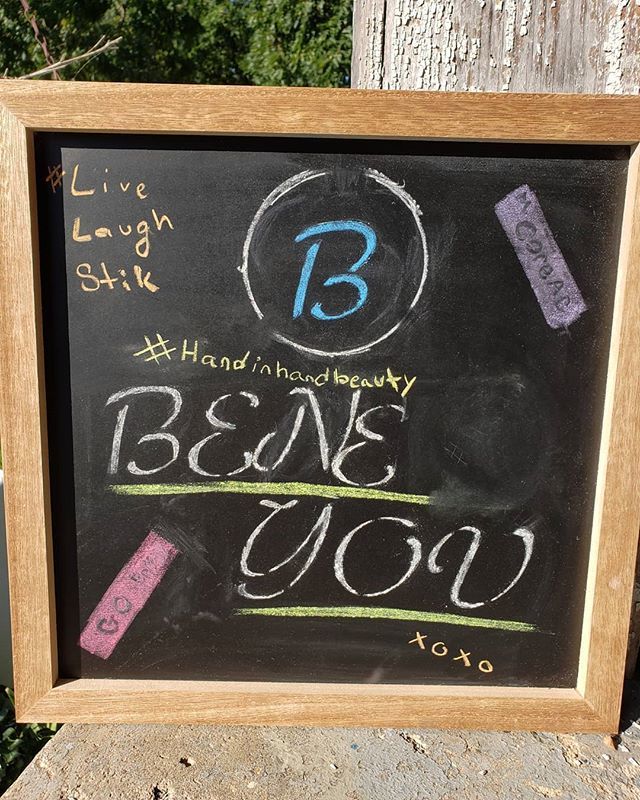 #Live
Laugh
Stik
B
#Handinhandbeauty
BENE
YOU
GO
xoxo